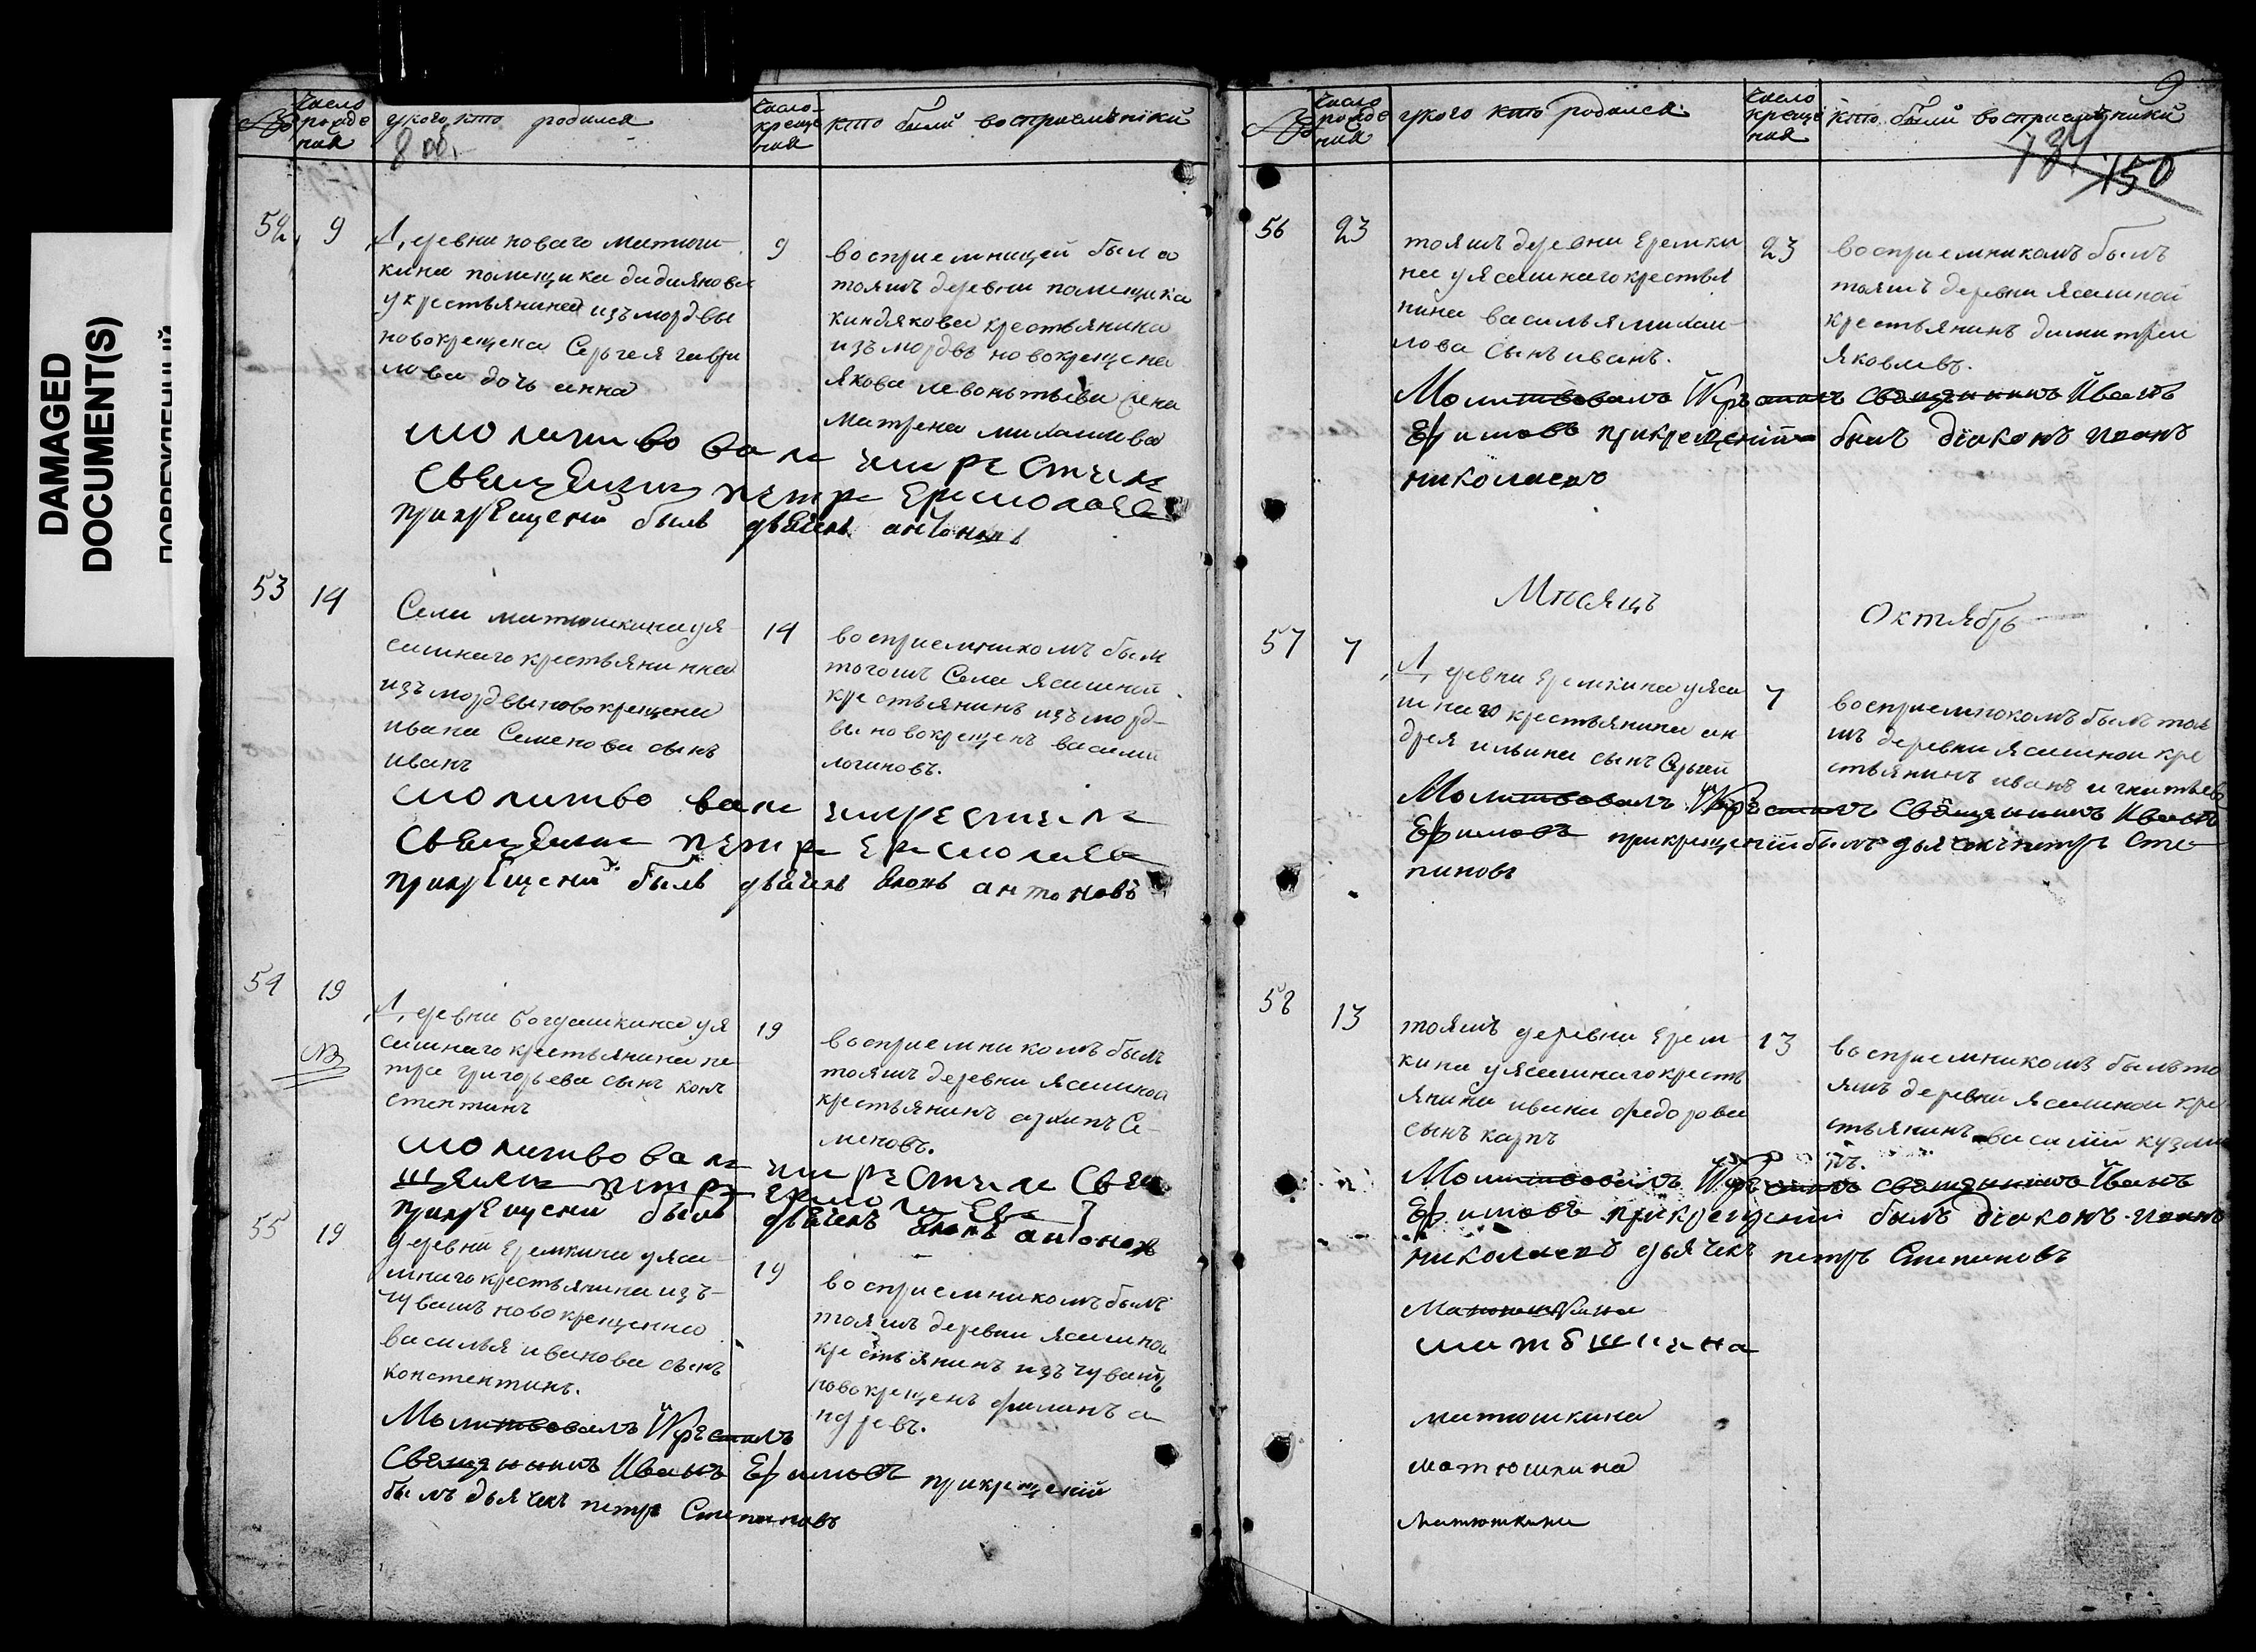 DAMAGED
DOCUMENT(S)
№
число рожде ния
у кого кто родился
8 об.
число креще ния
кто были восприемники
52
9
Деревни новаго матюш-
кина помещика дадиянова
у крестьянина изъ мордвы
новокрещена Сергея гаври
лова дочь анна
9
восприемницей была
тояжъ деревни помещика
киндякова крестьянина
изъ мордвъ новокрещена
якова левонтьева жена
матрена михаилова
молитвовалъ икрестилъ
Священникъ петръ Ермолаевъ
прикрещени былъ дьячекъ антоновъ
53
14
Села матюшкина у я
сашнаго крестьянина
изъ мордвы новокрещена
ивана Семенова сынъ
иванъ
14
восприемникомъ был
тогожъ Села Ясашной
крестьянинъ изъ морд-
вы новокрещенъ василий
логиновъ.
молитвовалъ икрестилъ
Священникъ петръ Ермолаевъ
прикрещени былъ дьячекъ антоновъ
54
19
NB
Деревни богдашкина у я
сашнаго крестьянина пе
тра григорьева сынъ кон
стентинъ
19
восприемникомъ былъ
тояжъ деревни ясашной
крестьянинъ архипъ Се-
меновъ.
молитвовалъ икрестилъ Свя
щенникъ петръ Ермолаевъ
прикрещени былъ дьячекъ антоновъ
55
19
деревни Еремкина у яса-
шнаго крестьянина изъ-
чувашъ новокрещенна
василья иванова сынъ
констентинъ.
19
восприемникомъ былъ
тояжъ деревни ясашной
крестьянинъ изъ чувашъ
новокрещенъ филипъ а
ндревъ.
Молитвовалъ Икрестилъ
Священникъ Иванъ Ефимовъ прикрещеніи
былъ дьячекъ петръ Степановъ
9
№
число рожде ния
у кого кто родился
число креще ния
кто были восприемники
184
150
56
23
тояжъ деревни Еремки
на у ясашнаго крестья
нина василья михаи-
лова сынъ иванъ.
23
восприемникомъ былъ
тояжъ деревни ясашной
крестьянинъ димитреи
яковлевъ.
Молитвовалъ Икрестилъ священникъ Иванъ
Ефимовъ прикрещеніи былъ діаконъ иванъ
николаевъ
Мѣсяцъ
Октябрь
57
7
Деревни Еремкина у яса
шнаго крестьянина ан
дрея ильина сынъ Сергей
7
восприемнокомъ былъ тоя
жъ деревни ясашнои кре
стьянинъ иванъ игнатьев
Молитвовалъ Икрестилъ священникъ Иванъ
Ефимовъ прикрещеніи былъ дьячекъ петръ Сте
пановъ
58
13
тояжъ деревни Ерем-
кина у ясашнаго кресть
янина ивана федорова
сынъ карпъ
13
восприемникомъ былъ то
яжъ деревни ясашнои кре
стьянинъ василій кузми
нъ.
Молитвовалъ Икрестилъ священникъ Иванъ
Ефимовъ прикрещеніи былъ діаконъ иванъ
николаевъ дьячекъ петръ Степановъ
Матюшкина
матюшкина
матюшкина
матюшкина
матюшкина